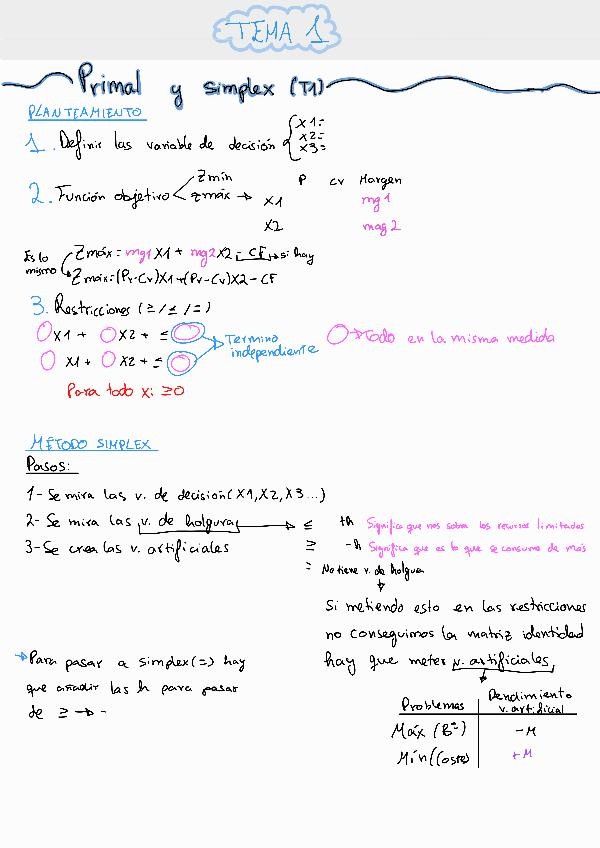 TEMA 1
Primal y simplex (T1)
PLANTEAMIENTO
1. Definir las variable de decisión { X1=
X2=
X3=
2. Función objetivo < Zmín
zmáx → X1
X2
P CV Margen
mg1
mag2
Es lo mismo
Zmáx = mg1X1 + mg2X2 - CF → si hay
Zmáx = (Pv-Cv)X1 + (Pv-Cv)X2 - CF
3. Restricciones (≥/≤/=)
X1 + X2 + ≤
X1 + X2 + ≤
Termino
independiente
→ Todo en la misma medida
Para todo Xi ≥0
MÉTODO SIMPLEX
Pasos:
1- Se mira las v. de decisión (X1, X2, X3...)
2- Se mira las v. de holgura → ≤ +h Significa que nos sobra los recursos limitados
3- Se crea las v. artificiales
≥ -h Significa que es lo que se consume de más
= No tiene v. de holgua
Si metiendo esto en las restricciones
no conseguimos la matriz identidad
hay que meter v. artificiales
→ Para pasar a simplex (=) hay
que añadir las h para pasar
de ≥ → -
Problemas Rendimiento
v. artificial
Máx (Bº=) -M
Mín (Coste) +M